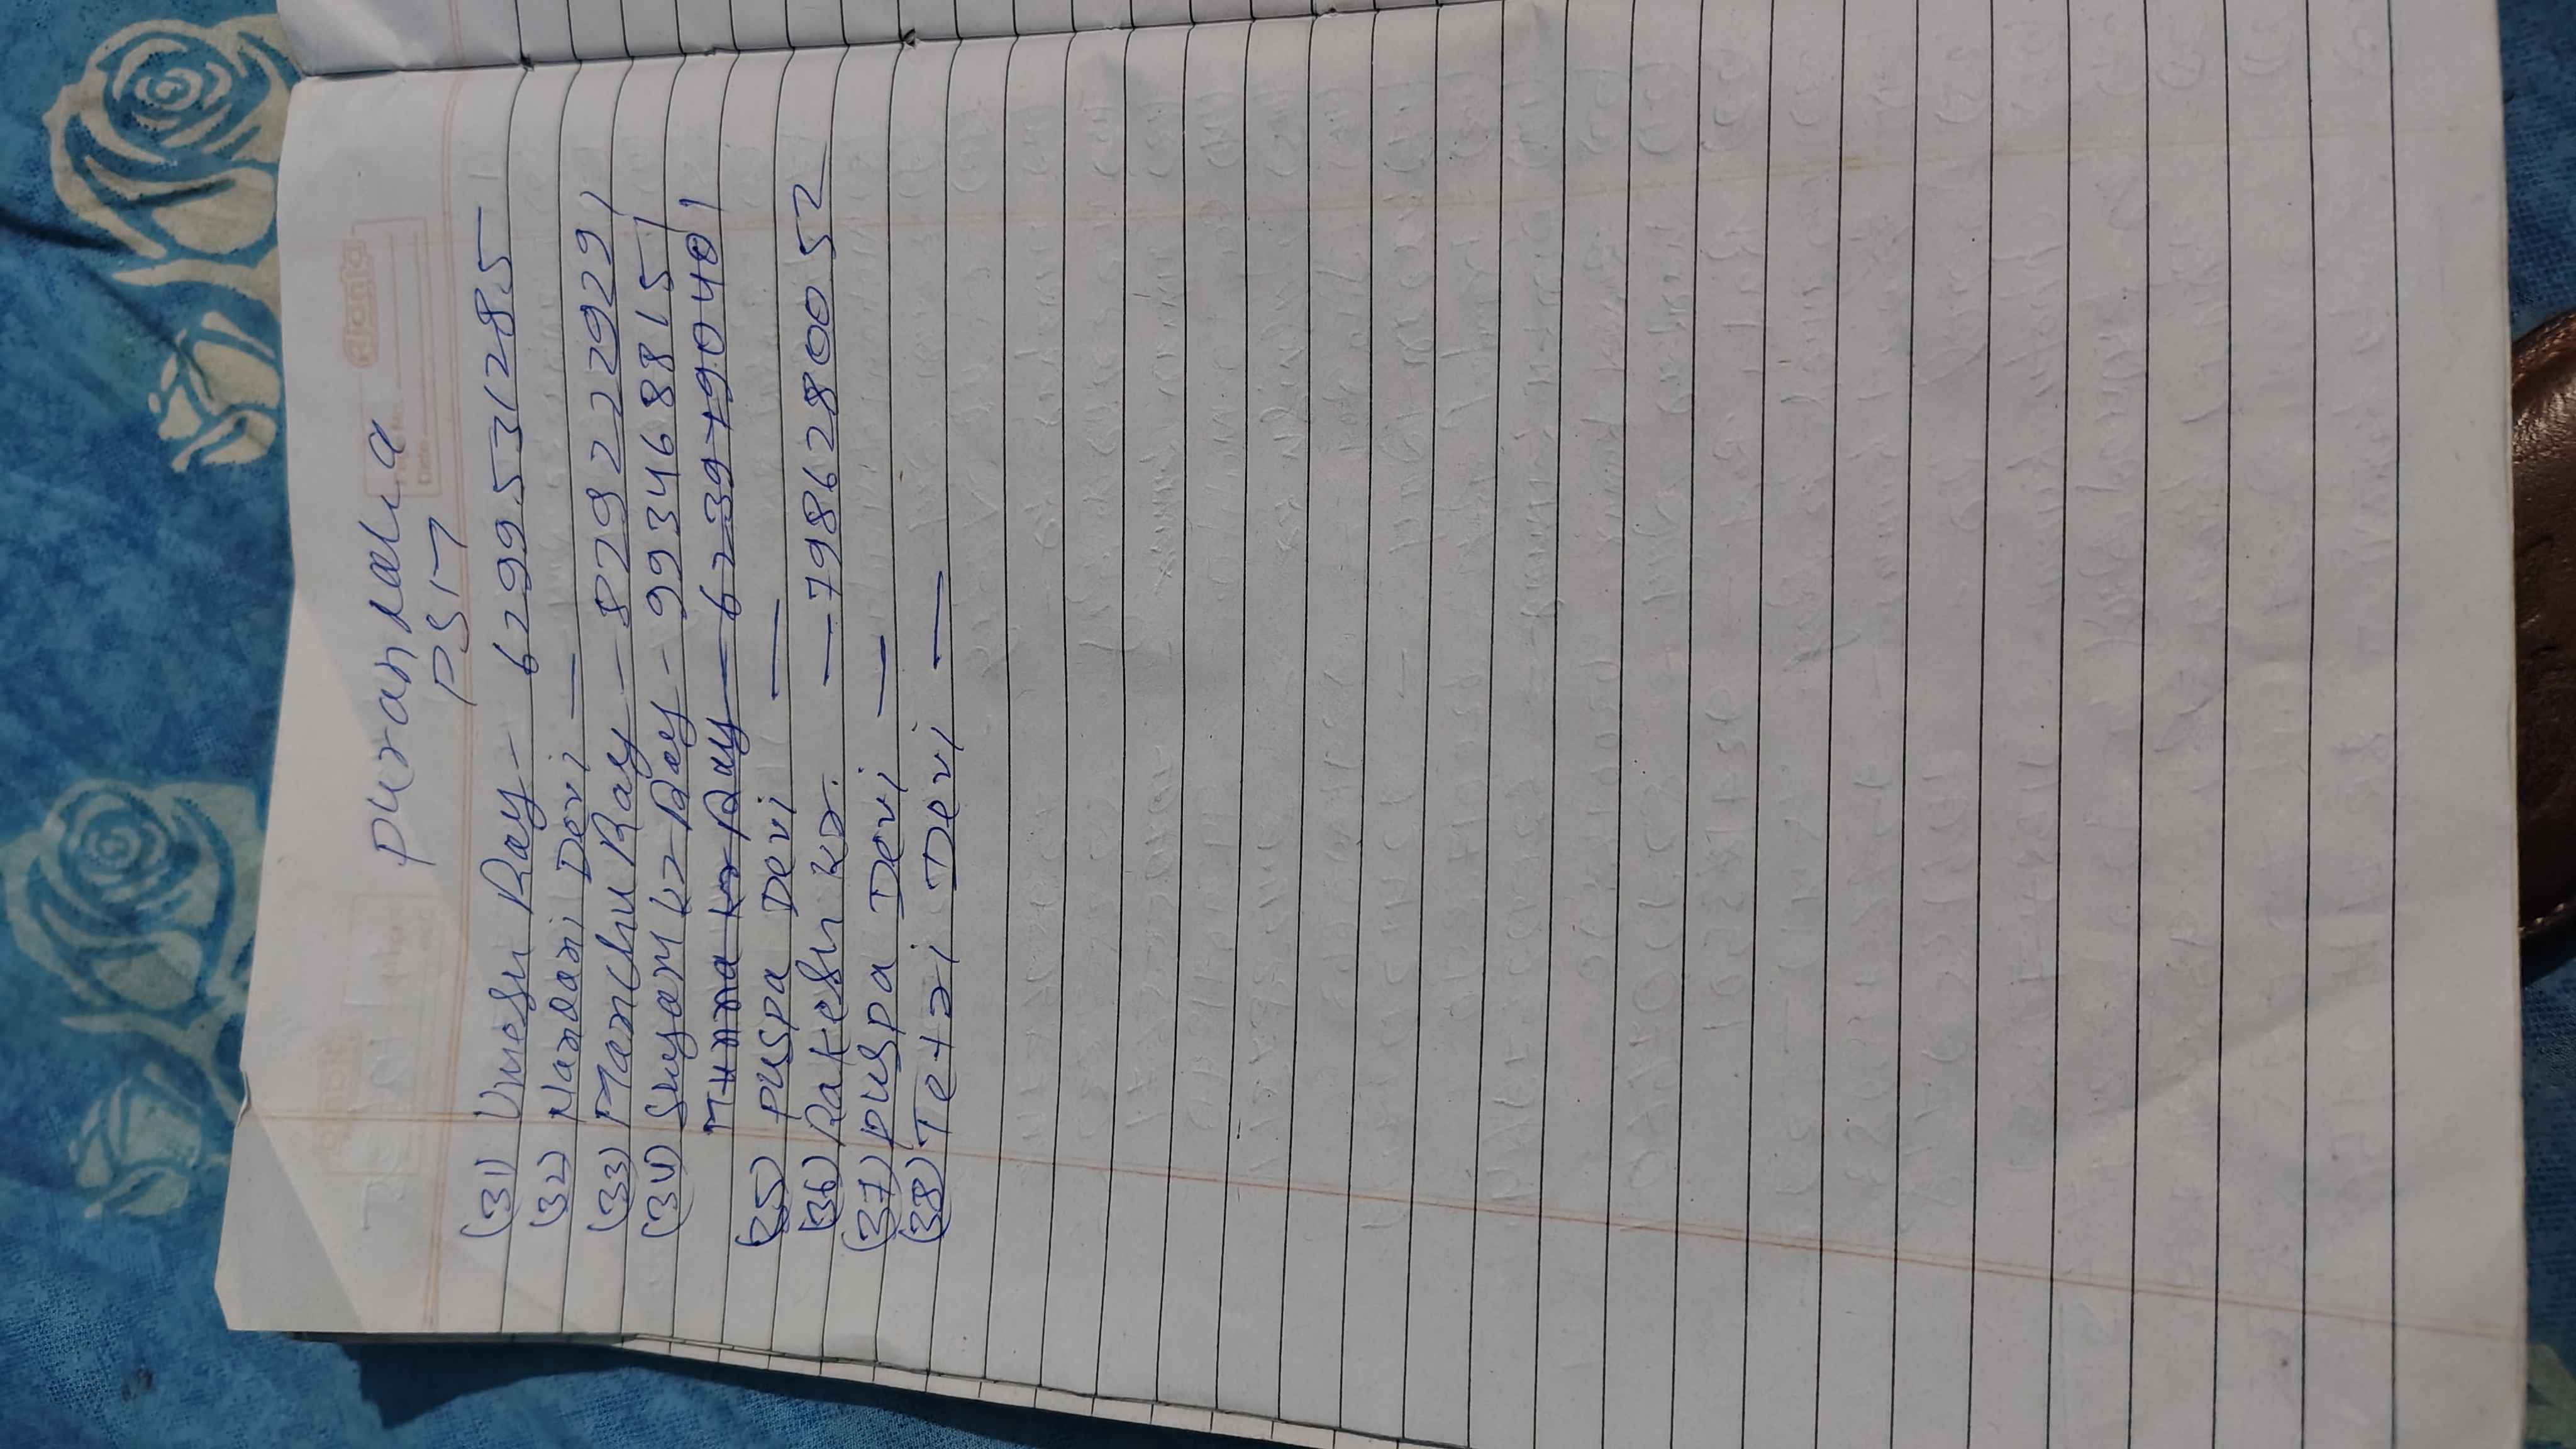 Purandaha
PS17
(31) Umesh Ray - 6299531285
(32) Nandani Devi —
(33) Manchu Ray - 8709222929 1
(34) Shyam kr Ray - 9934688151
Munna kr Ray — 6239790401
(35) puspa Devi —
(36) Rakesh kr. — 7986280052
(37) puspa Devi —
(38) Tetri Devi —